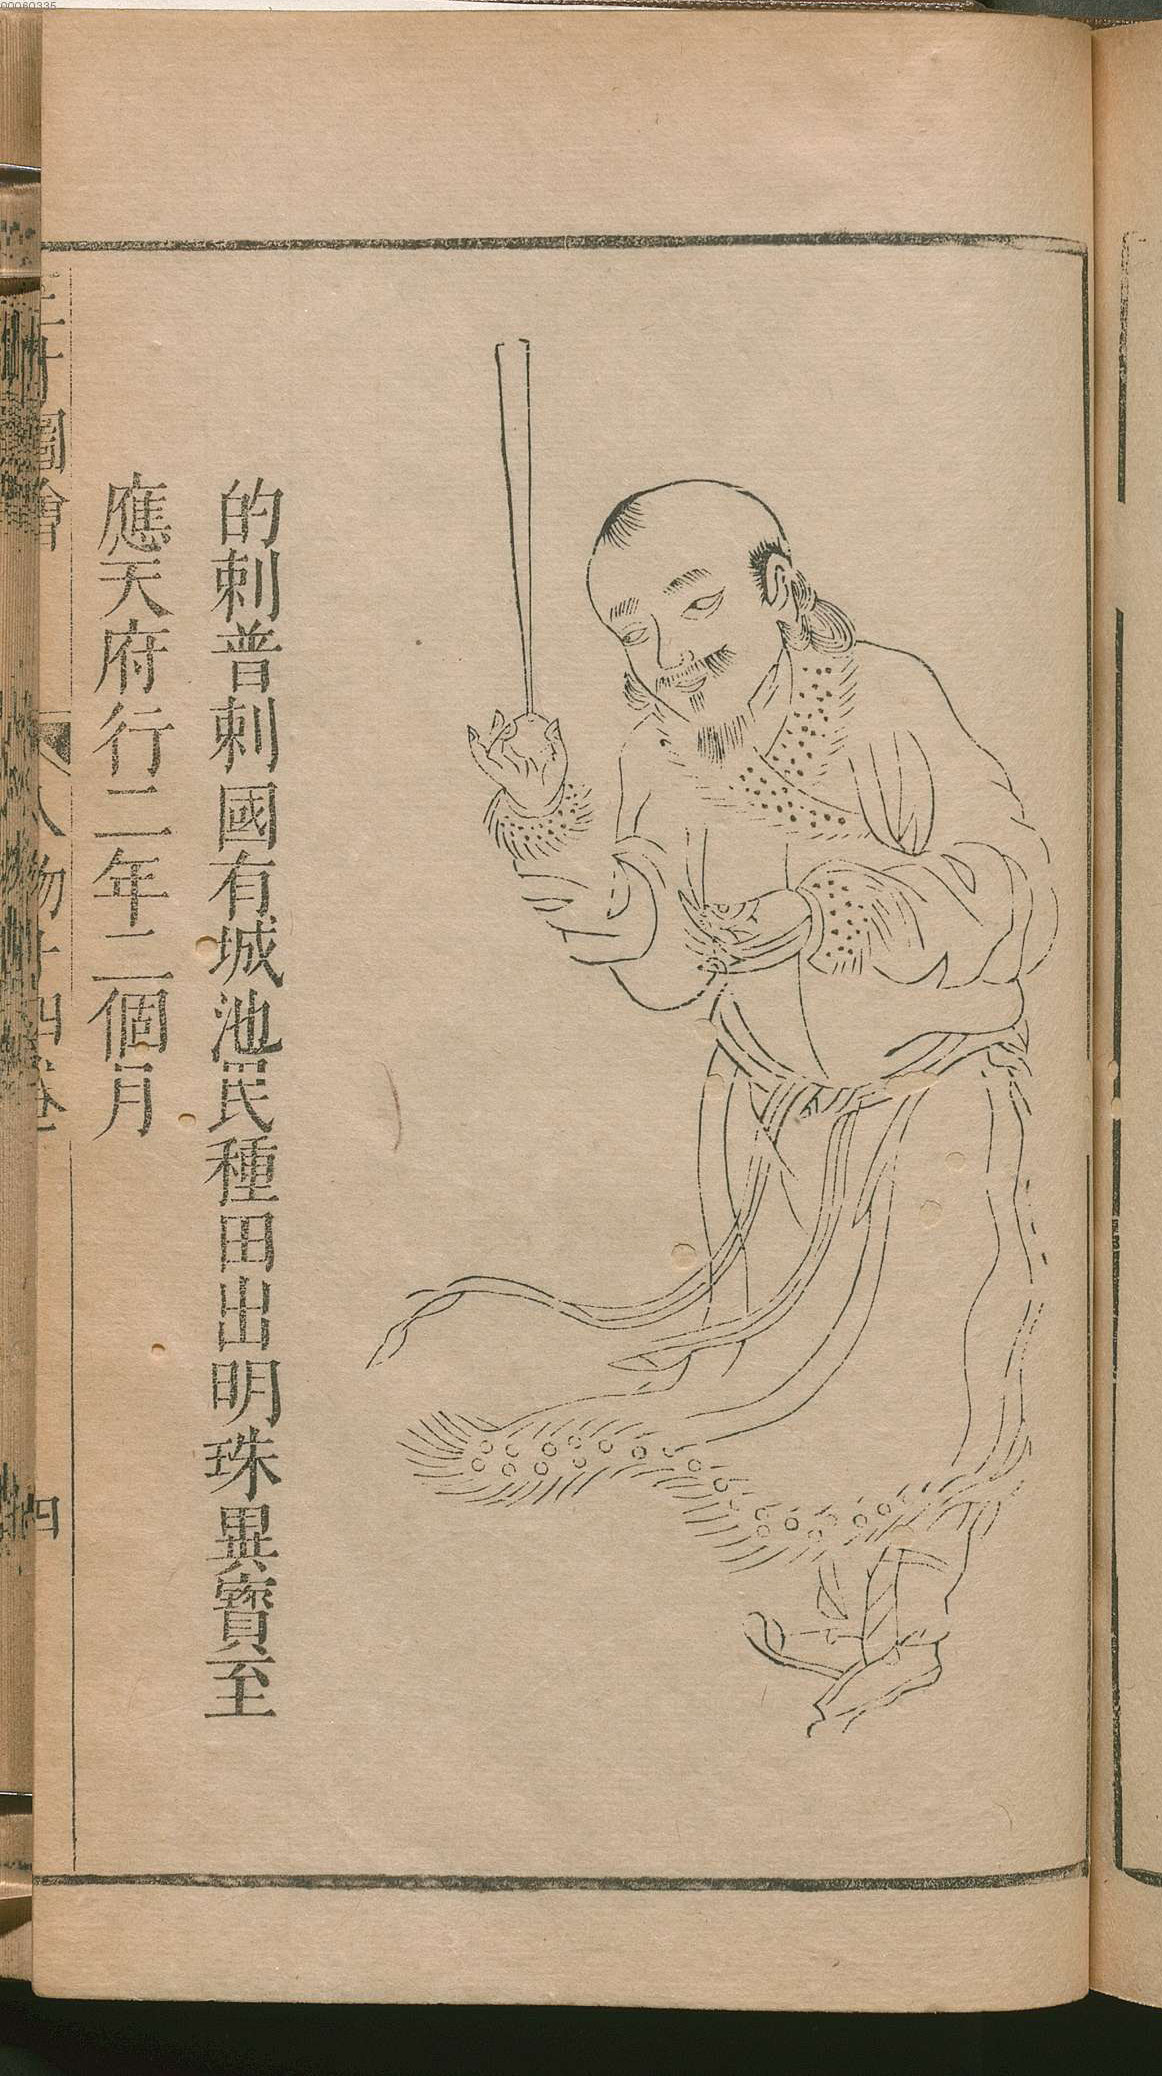 的剌普剌國有城池民種田出明珠異寶至
應天府行二年二個月
三才圖會 人物十四卷 四
00060335